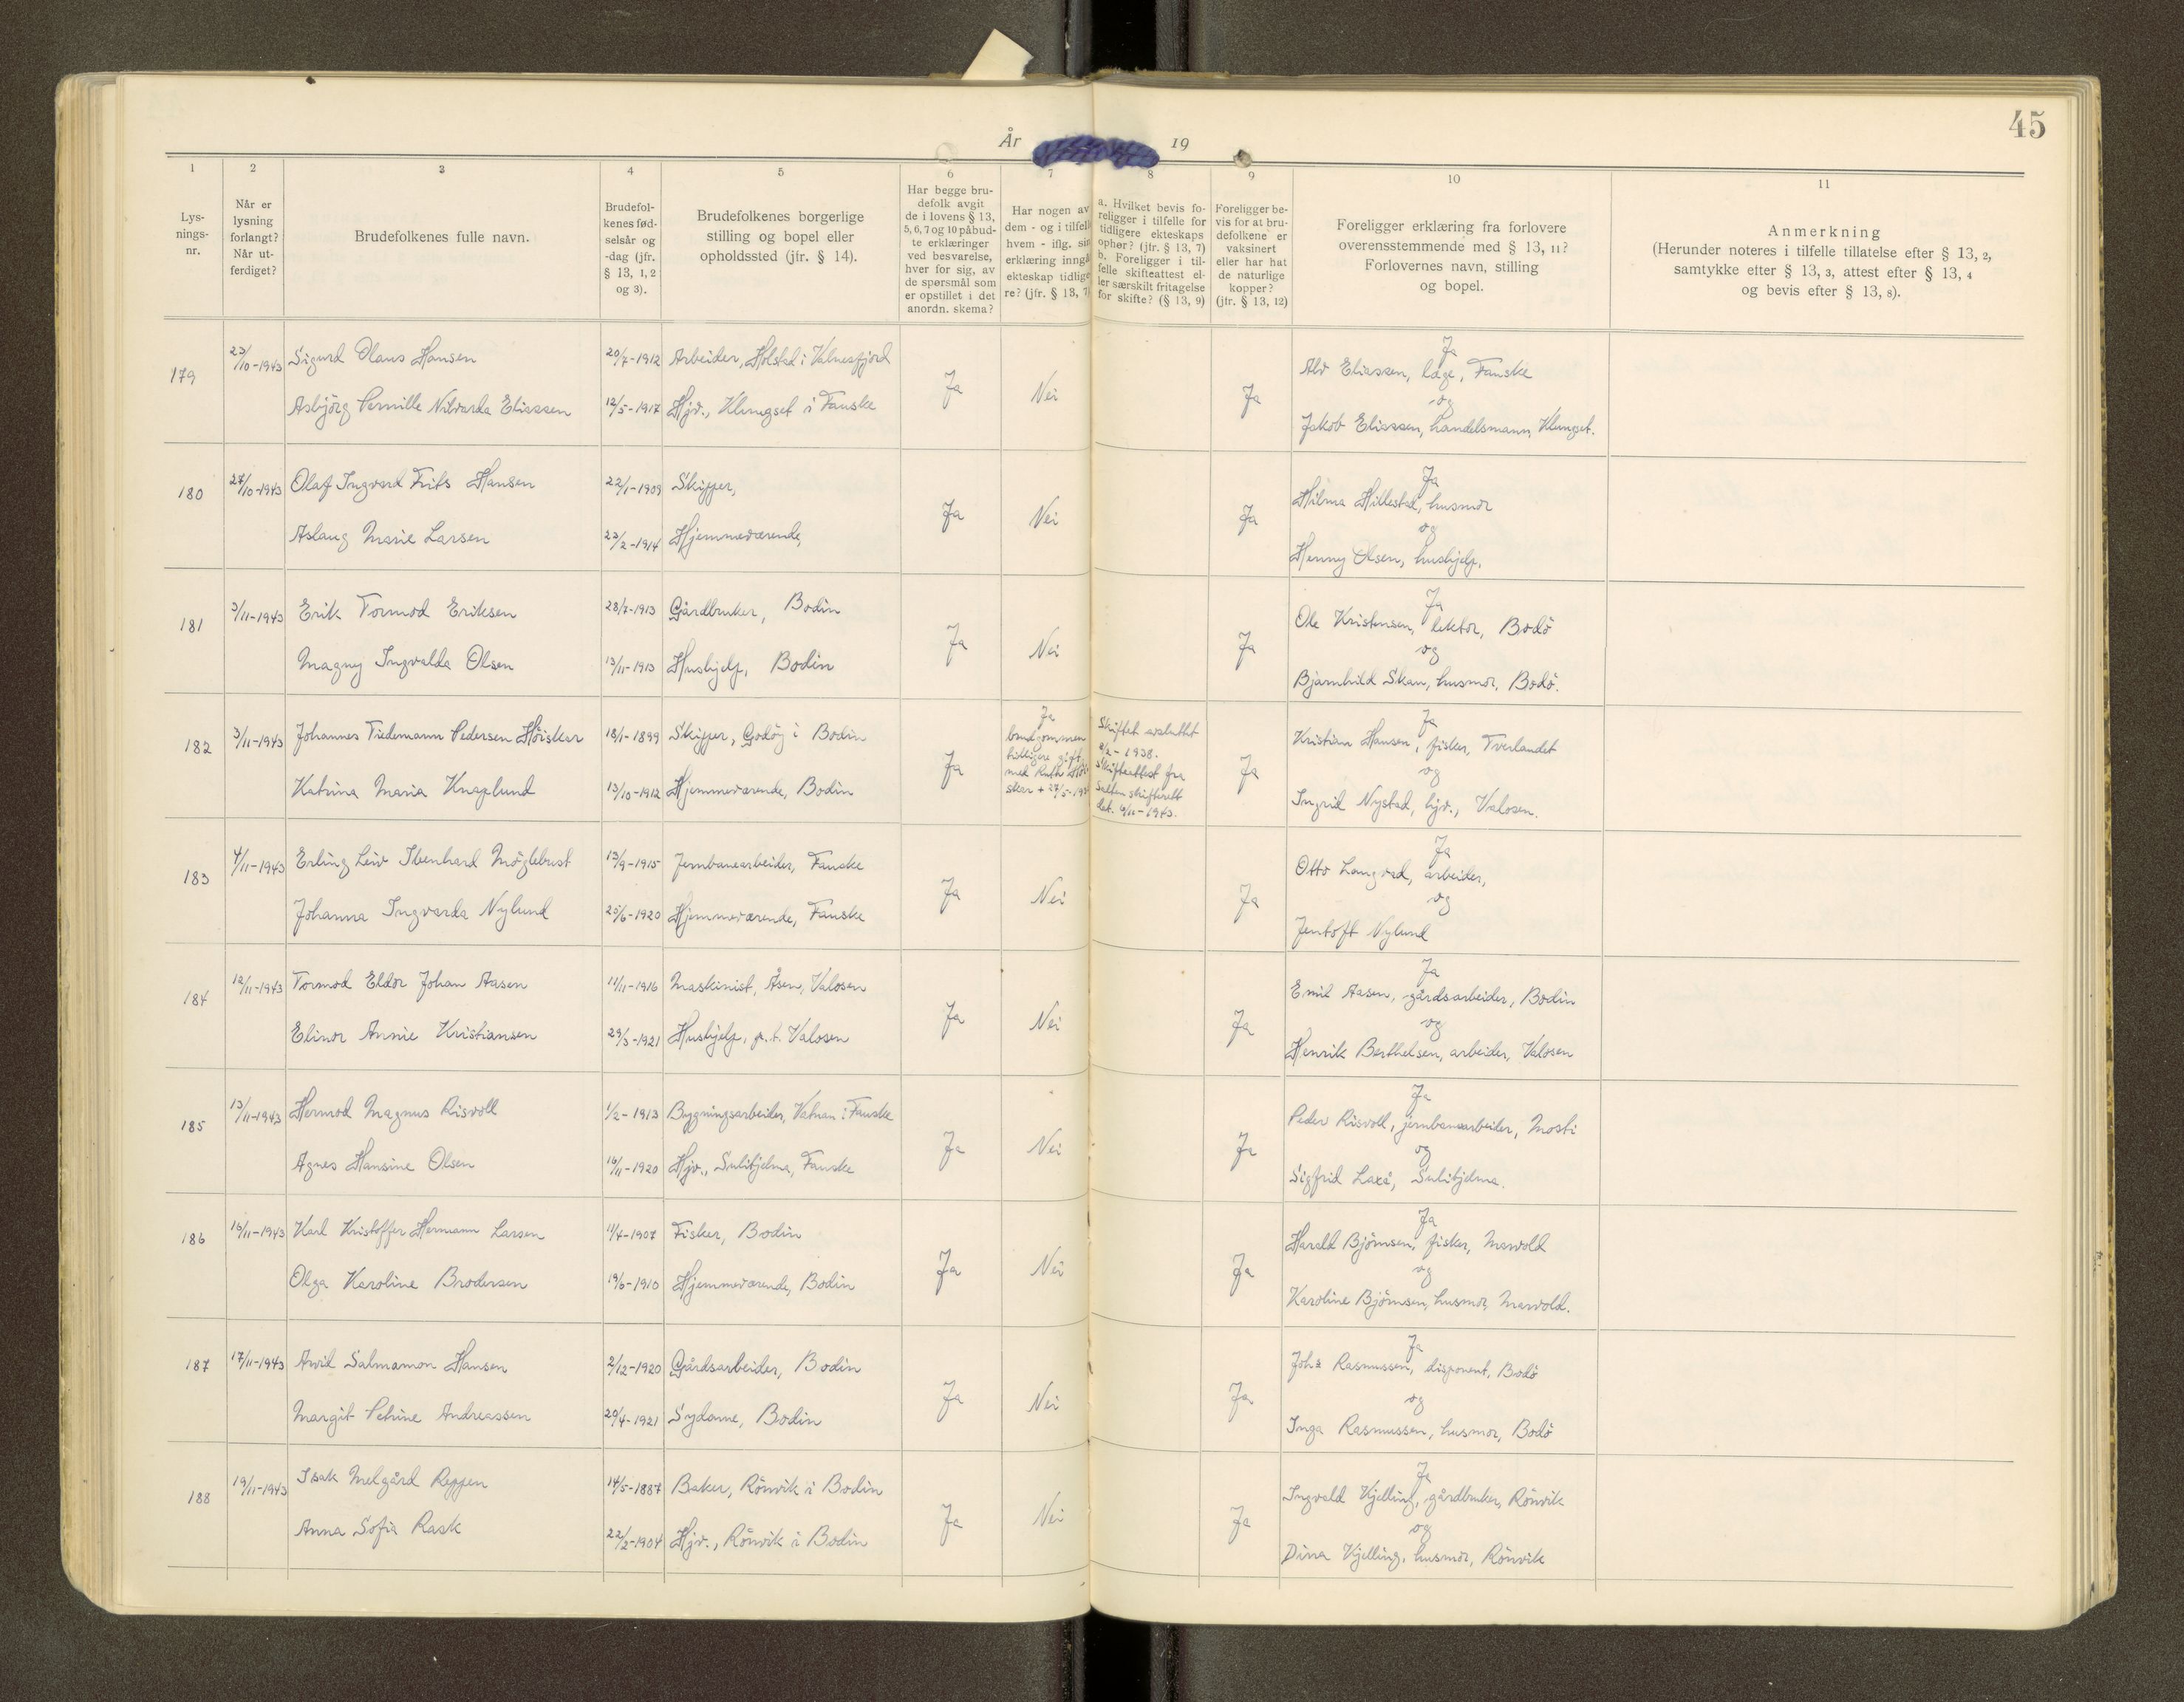 45
År 19
1 2 3 4 5 6 7 8 9 10 11
Lys-
nings-
nr.
Når er
lysning
forlangt?
Når ut-
ferdiget?
Brudefolkenes fulle navn.
Brudefol-
kenes fød-
selsår og
-dag (jfr.
§ 13, 1, 2
og 3).
Brudefolkenes borgerlige
stilling og bopel eller
opholdssted (jfr. § 14).
Har begge bru-
defolk avgit
de i lovens § 13,
5, 6, 7 og 10 påbud-
te erklæringer
ved besvarelse,
hver for sig, av
de spørsmål som
er opstillet i det
anordn. skema?
Har nogen av
dem - og i tilfell
hvem - iflg. sin
erklæring inngå
ekteskap tidlige
re? (jfr. § 13, 7
a. Hvilket bevis fo-
religger i tilfelle for
tidligere ekteskaps
ophør? (jfr. § 13, 7)
b. Foreligger i til-
felle skifteattest el-
ler særskilt fritagelse
for skifte? (§ 13, 9)
Foreligger be-
vis for at bru-
defolkene er
vaksinert
eller har hat
de naturlige
kopper?
(jfr. § 13, 12)
Foreligger erklæring fra forlovere
overensstemmende med § 13, 11?
Forlovernes navn, stilling
og bopel.
Anmerkning
(Herunder noteres i tilfelle tillatelse efter § 13, 2,
samtykke efter § 13, 3, attest efter § 13, 4
og bevis efter § 13, 8).
179 23/10-1943 Sigurd Olaus Hansen 20/7-1912 Arbeider, Holstad i Valnesfjord
Asbjörg Pernille Nilvarda Eliassen 12/5-1917 Hjv., Klungset i Fauske
Ja Nei Ja
Ja
Alv Eliassen, læge, Fauske
og
Jakob Eliassen, handelsmann, Klungset.
180 27/10-1943 Olaf Ingvard Frits Hansen 22/1-1909 Skipper,
Aslaug Marie Larsen 23/2-1914 Hjemmeværende,
Ja Nei Ja
Ja
Hilma Hillestad, husmor
og
Henny Olsen, hushjelp.
181 3/11-1943 Erik Tormod Eriksen 28/7-1913 Gårdbruker, Bodin
Magny Ingvalda Olsen 13/11-1913 Hushjelp, Bodin
Ja Nei Ja
Ja
Ole Kristensen, lektor, Bodö
og
Bjarnhild Skau, husmor, Bodö.
182 3/11-1943 Johannes Tiedemann Pedersen Höiskar 18/1-1899 Skipper, Godöy i Bodin
Katrina Maria Knaplund 13/10-1912 Hjemmeværende, Bodin
Ja
Ja
brudgommen
tidligere gift
med Ruth Höi-
skar + 27/5-193
Skiftet avsluttet
9/2-1938.
Skifteattest fra
Salten skifterett
dat. 9/11-1943.
Ja
Ja
Kristian Hansen, fisker, Tverlandet
og
Ingrid Nystad, hjv., Valosen.
183 4/11-1943 Erling Leiv Ibenhard Möglebust 13/9-1915 Jernbanearbeider, Fauske
Johanna Ingvarda Nylund 25/6-1920 Hjemmeværende, Fauske
Ja Nei Ja
Ja
Otto Langvad, arbeider,
og
Jentoft Nylund
184 12/11-1943 Tormod Eldor Johan Aasen 11/11-1916 Maskinist, Åsen, Valosen
Elinor Annie Kristiansen 29/3-1921 Hushjelp, p.t. Valosen
Ja Nei Ja
Ja
Emil Aasen, gårdsarbeider, Bodin
og
Henrik Berthelsen, arbeider, Valosen
185 13/11-1943 Hermod Magnus Risvoll 1/2-1913 Bygningsarbeider, Vatnan i Fauske
Agnes Hansine Olsen 16/11-1920 Hjv., Sulitjelma, Fauske
Ja Nei Ja
Ja
Peder Risvoll, jernbanearbeider, Mosti
og
Sigfrid Laxå, Sulitjelma.
186 16/11-1943 Karl Kristoffer Hermann Larsen 11/4-1907 Fisker, Bodin
Olga Karoline Brodersen 19/6-1910 Hjemmeværende, Bodin
Ja Nei Ja
Ja
Harald Björnsen, fisker, Marvold
og
Karoline Björnsen, husmor, Marvold.
187 17/11-1943 Arvid Salmamon Hansen 2/12-1920 Gårdsarbeider, Bodin
Margit Petrine Andreassen 20/4-1921 Sydame, Bodin
Ja Nei Ja
Ja
Johs Rasmussen, disponent, Bodö
og
Inga Rasmussen, husmor, Bodö
188 19/11-1943 Isak Melgård Reppen 14/5-1887 Baker, Rönvik i Bodin
Anna Sofia Rask 22/2-1904 Hjv., Rönvik i Bodin
Ja Nei Ja
Ja
Ingvald Kjelling, gårdbruker, Rönvik
og
Dina Kjelling, husmor, Rönvik